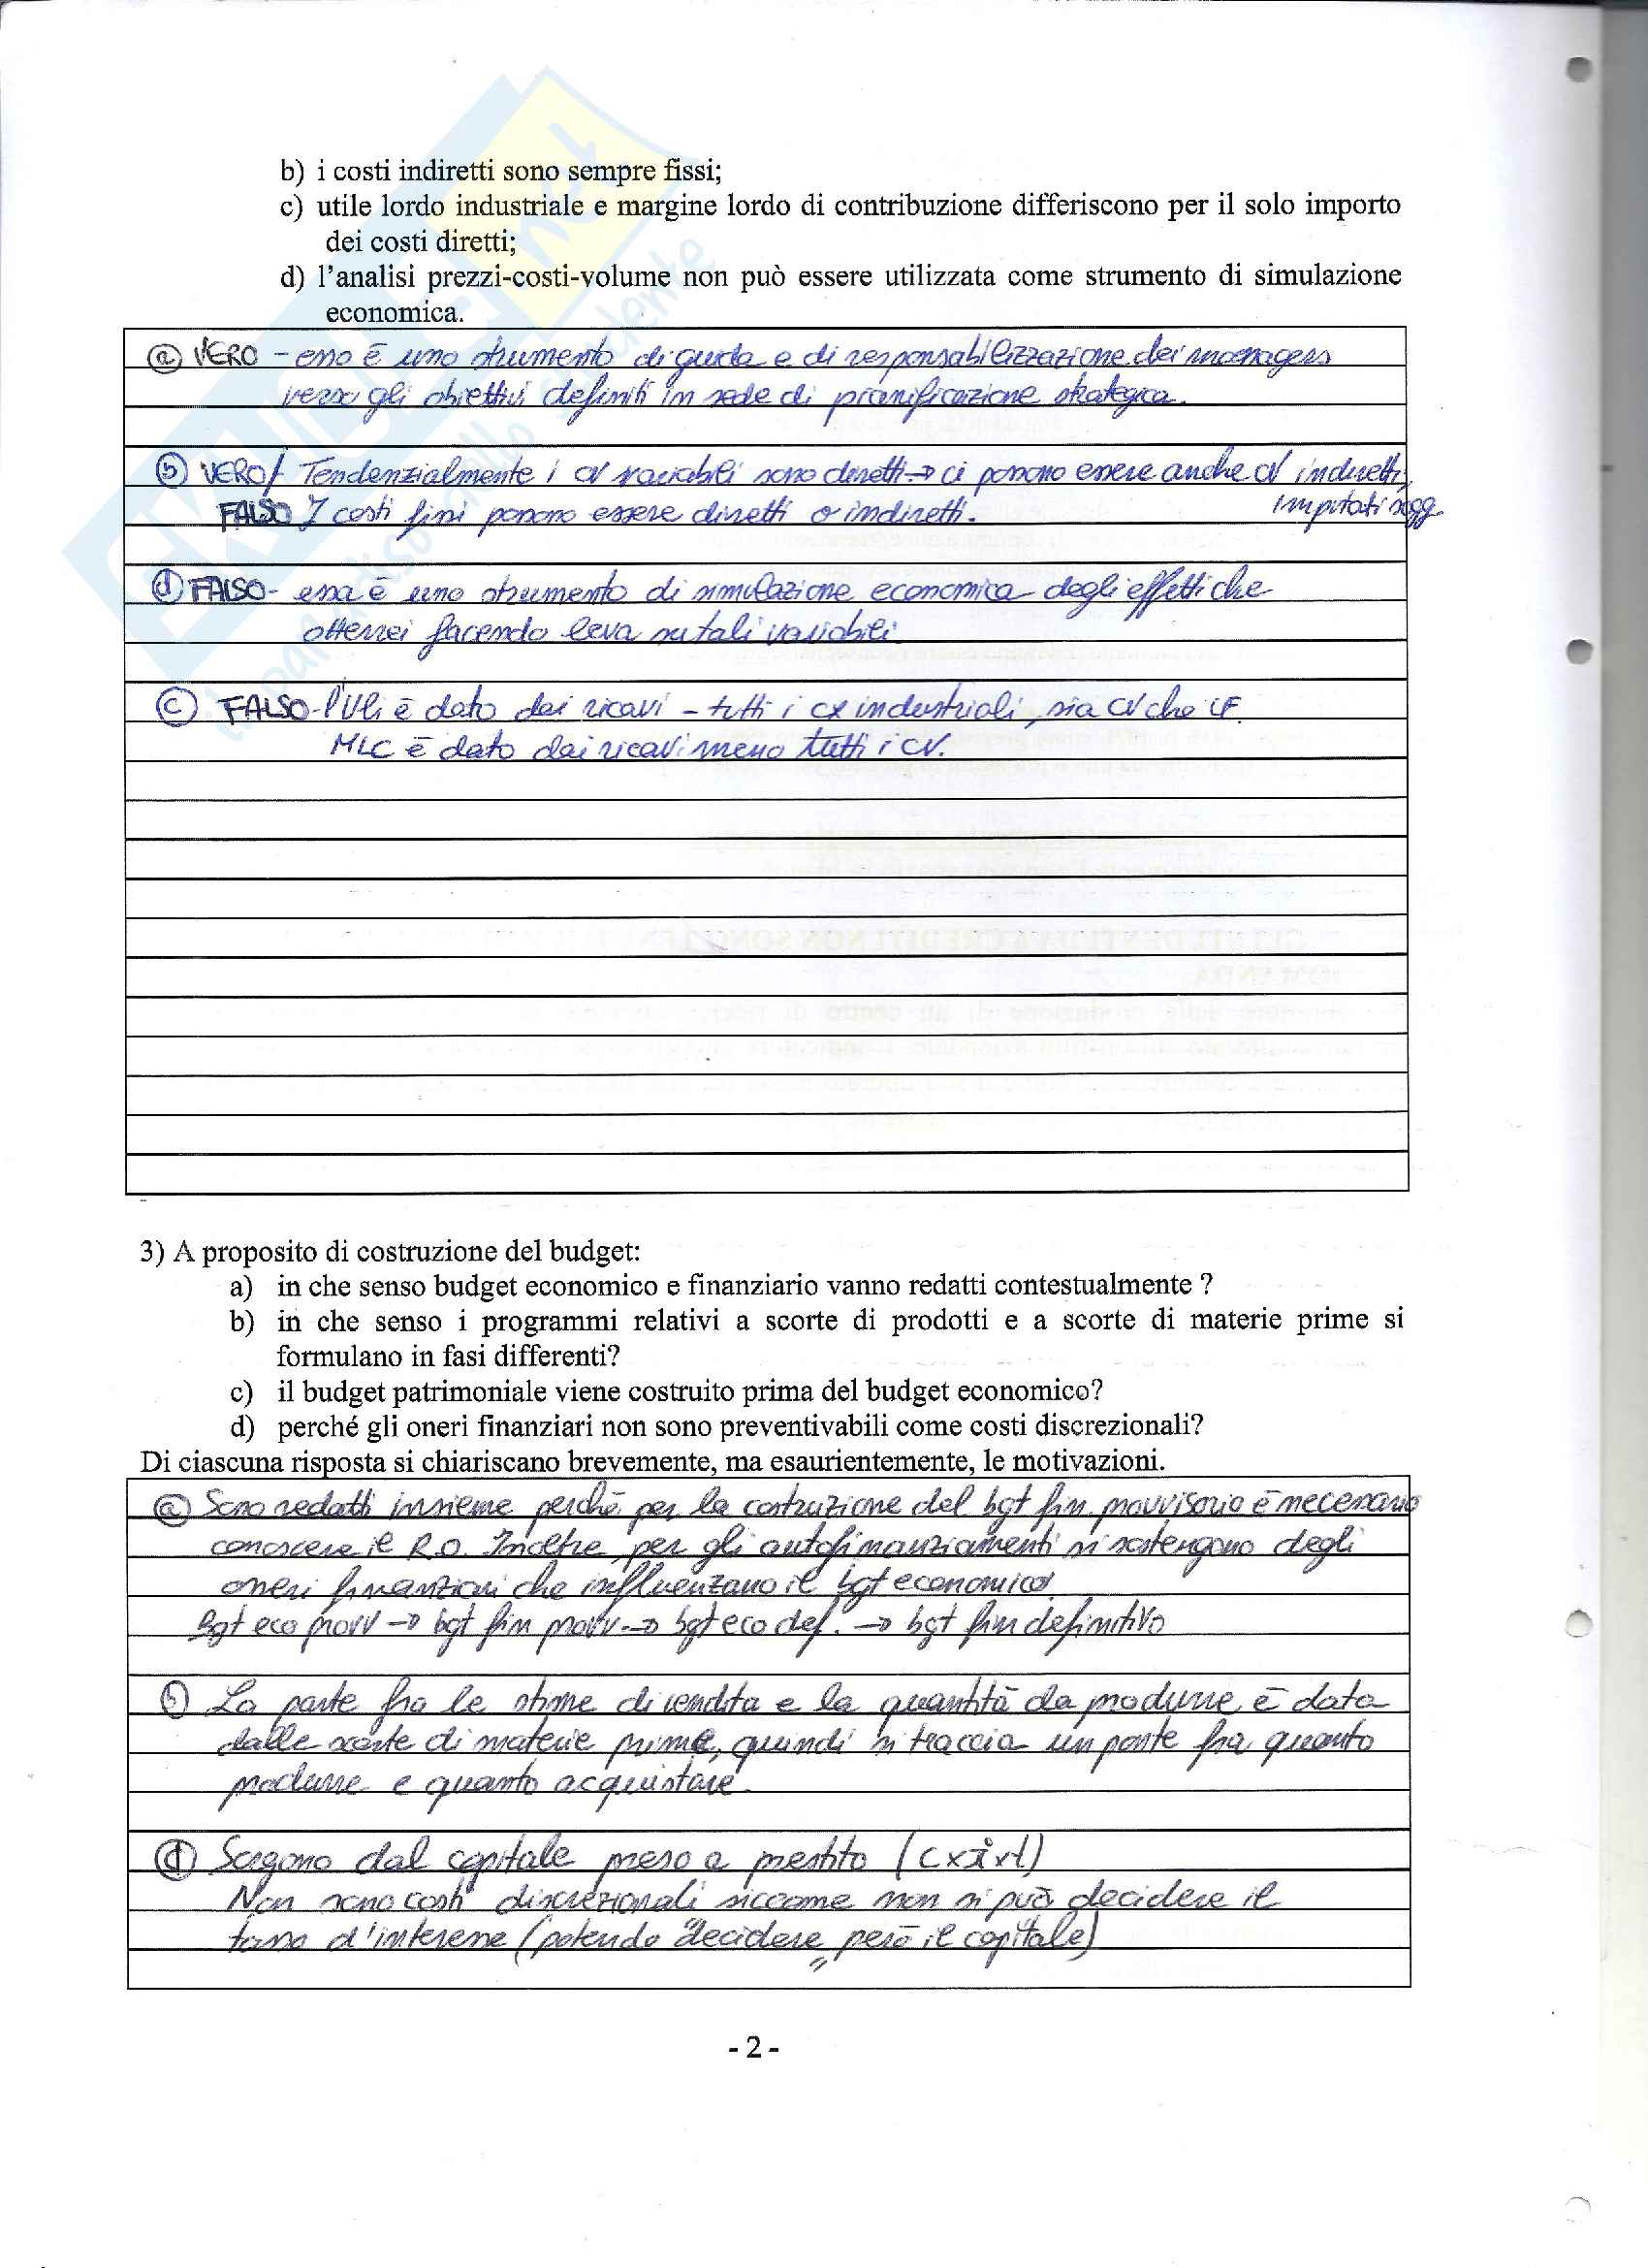 b) i costi indiretti sono sempre fissi;
c) utile lordo industriale e margine lordo di contribuzione differiscono per il solo importo
dei costi diretti;
d) l'analisi prezzi-costi-volume non può essere utilizzata come strumento di simulazione
economica.
a VERO - esso è uno strumento di guida e di responsabilizzazione dei managers
verso gli obiettivi definiti in sede di pianificazione strategica.
b VERO/ Tendenzialmente i CV variabili sono diretti → ci possono essere anche CV indiretti,
FALSO I costi fissi possono essere diretti o indiretti. imputati sogg.
d FALSO - essa è uno strumento di simulazione economica degli effetti che
otterrei facendo leva su tali variabili
c FALSO - l'ULi è dato dai ricavi - tutti i cx industriali, sia CV che CF.
MLC è dato dai ricavi meno tutti i CV.
3) A proposito di costruzione del budget:
a) in che senso budget economico e finanziario vanno redatti contestualmente ?
b) in che senso i programmi relativi a scorte di prodotti e a scorte di materie prime si
formulano in fasi differenti?
c) il budget patrimoniale viene costruito prima del budget economico?
d) perché gli oneri finanziari non sono preventivabili come costi discrezionali?
Di ciascuna risposta si chiariscano brevemente, ma esaurientemente, le motivazioni.
a Sono redatti insieme perché per la costruzione del bgt fin. provvisorio è necessario
conoscere il R.O. Inoltre, per gli autofinanziamenti si sostengono degli
oneri finanziari che influenzano il bgt economico.
Bgt eco provv → bgt fin provv → bgt eco def. → bgt fin definitivo
b La parte fra le stime di vendita e la quantità da produrre è data
dalle scorte di materie prime, quindi si traccia un ponte fra quanto
produrre e quanto acquistare.
d Sorgono dal capitale preso a prestito (C x i x t)
Non sono costi discrezionali siccome non si può decidere il
tasso d'interesse (potendo decidere però il capitale)
- 2 -